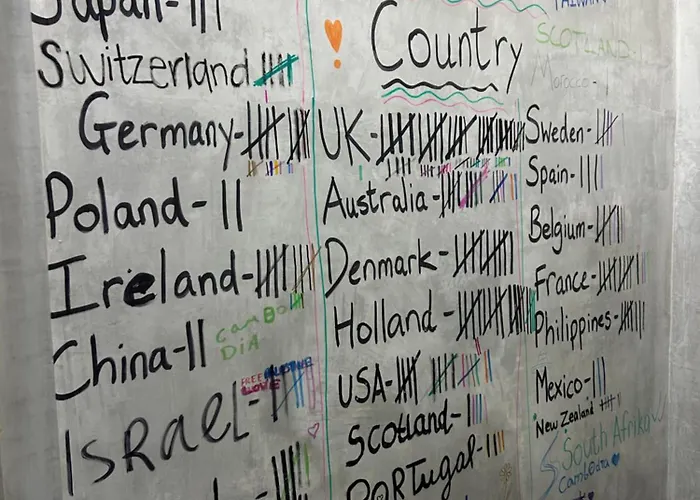 Japan-
Switzerland
Germany-
Poland-
Ireland-
China-
CamBO
DiA
FREE PALESTINE
LOVE
ISRael-
Country
UK-
Australia-
Denmark-
Holland-
USA-
Scotland-
PORTugal-
TAIWAN
SCOTLAND-
Morocco-
Sweden-
Spain-
Belgium-
France-
Philippines-
Mexico-
New Zealand
South Afrika
Cambodia